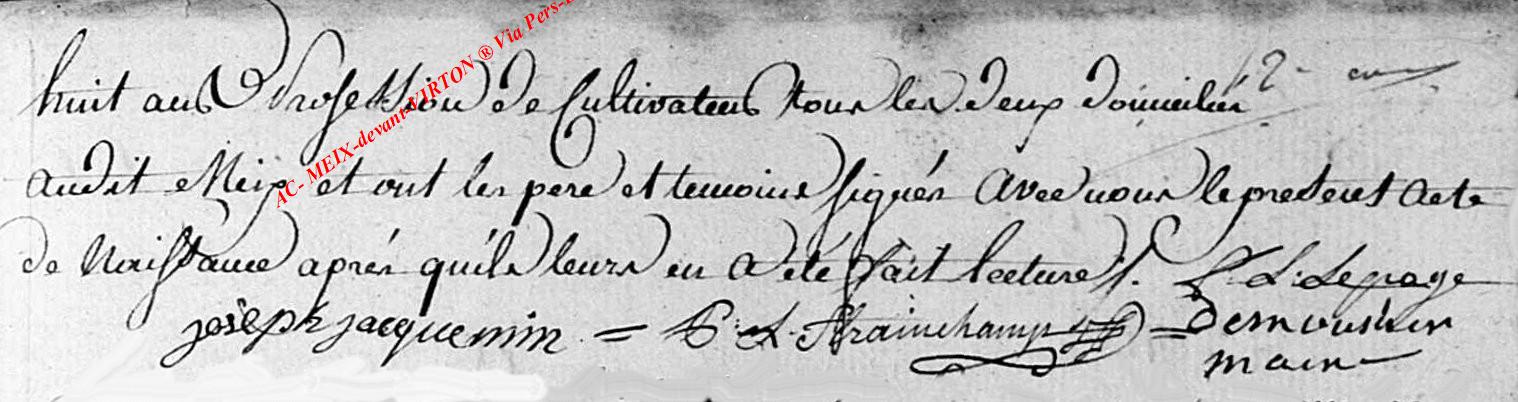 huit ans Profession de Cultivateurs tous les deux domiciliés
audit Meix et ont les pere et temoins signés avec nous le present acte
de Naissance aprés quils leurs en a été fait lecture ./.
J. L. Lepage
joseph jacquemin = Strainchamps = Demousher
maire
AC- MEIX-devant-VIRTON ® Via Pers-